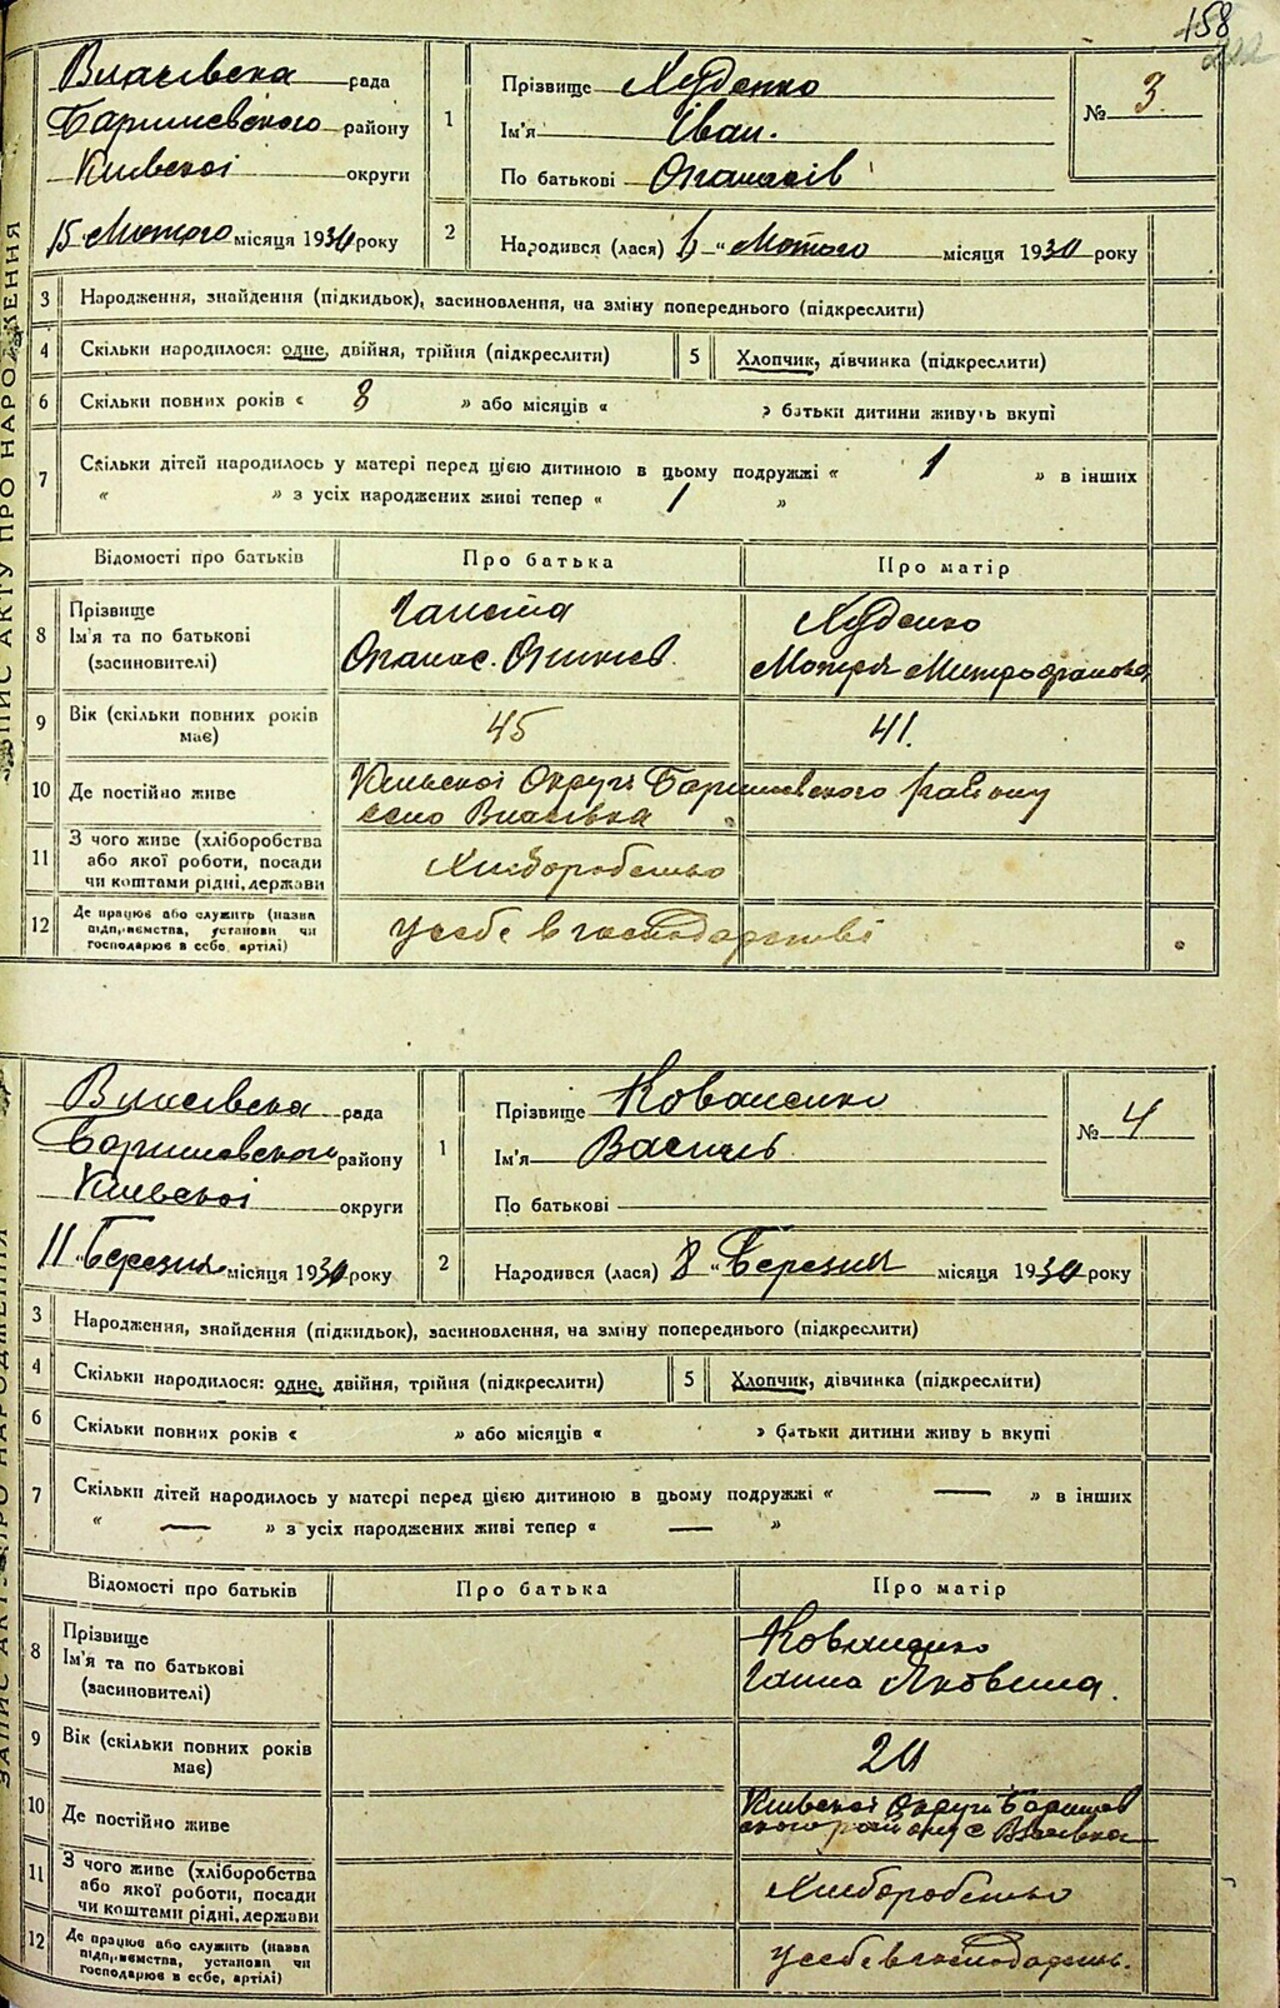 158
Власівска рада
Баришевського району
Київскої округи
15 Лютого місяця 1930 року
1
Прізвище Худенко
Ім'я Іван.
По батькові Опанасів
№ 3
2
Народився (лася) 6 „ Лютого місяця 1930 року
3 Народження, знайдення (підкидьок), засиновлення, на зміну попереднього (підкреслити)
4 Скільки народилося: одне, двійня, трійня (підкреслити) 5 Хлопчик, дівчинка (підкреслити)
6 Скільки повних років « 8 » або місяців « » батьки дитини живуть вкупі
7 Скільки дітей народилось у матері перед цією дитиною в цьому подружжі « 1 » в інших
« » з усіх народжених живі тепер « 1 »
Відомості про батьків Про батька Про матір
8 Прізвище
Ім'я та по батькові
(засиновителі)
Опанас.
Худенко
Мотря Митрофановна
9 Вік (скільки повних років
має)
45 41.
10 Де постійно живе
Київскої Округи Баришевского району
село Власівка
11 З чого живе (хліборобства
або якої роботи, посади
чи коштами рідні, держави
Хліборобство
12 Де працює або служить (назва
підприємства, установи чи
господарює в себе, артілі)
у себе в господарстві
ЗАПИС АКТУ ПРО НАРОДЖЕННЯ
Власівска рада
Баришевського району
Київскої округи
11 „ Березня місяця 1930 року
1
Прізвище Коваленко
Ім'я Василь
По батькові
№ 4
2
Народився (лася) 8 „ Березня місяця 1930 року
3 Народження, знайдення (підкидьок), засиновлення, на зміну попереднього (підкреслити)
4 Скільки народилося: одне, двійня, трійня (підкреслити) 5 Хлопчик, дівчинка (підкреслити)
6 Скільки повних років « » або місяців « » батьки дитини живу ь вкупі
7 Скільки дітей народилось у матері перед цією дитиною в цьому подружжі « — » в інших
« — » з усіх народжених живі тепер « — »
Відомості про батьків Про батька Про матір
8 Прізвище
Ім'я та по батькові
(засиновителі)
Коваленко
Ганна Яковина.
9 Вік (скільки повних років
має)
20
10 Де постійно живе
Київскої Округи Баришев
ского району с Власівка
11 З чого живе (хліборобства
або якої роботи, посади
чи коштами рідні, держави
Хліборобство
12 Де працює або служить (назва
підприємства, установи чи
господарює в себе, артілі)
у себе в господарств.
ЗАПИС АКТУ ПРО НАРОДЖЕННЯ